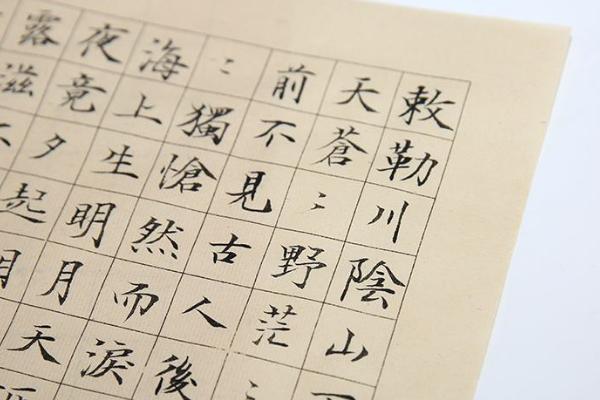 敕勒川陰山
天蒼〻野茫〻
前不見古人後
〻獨愴然而淚
海上生明月天
夜竟夕起
露滋